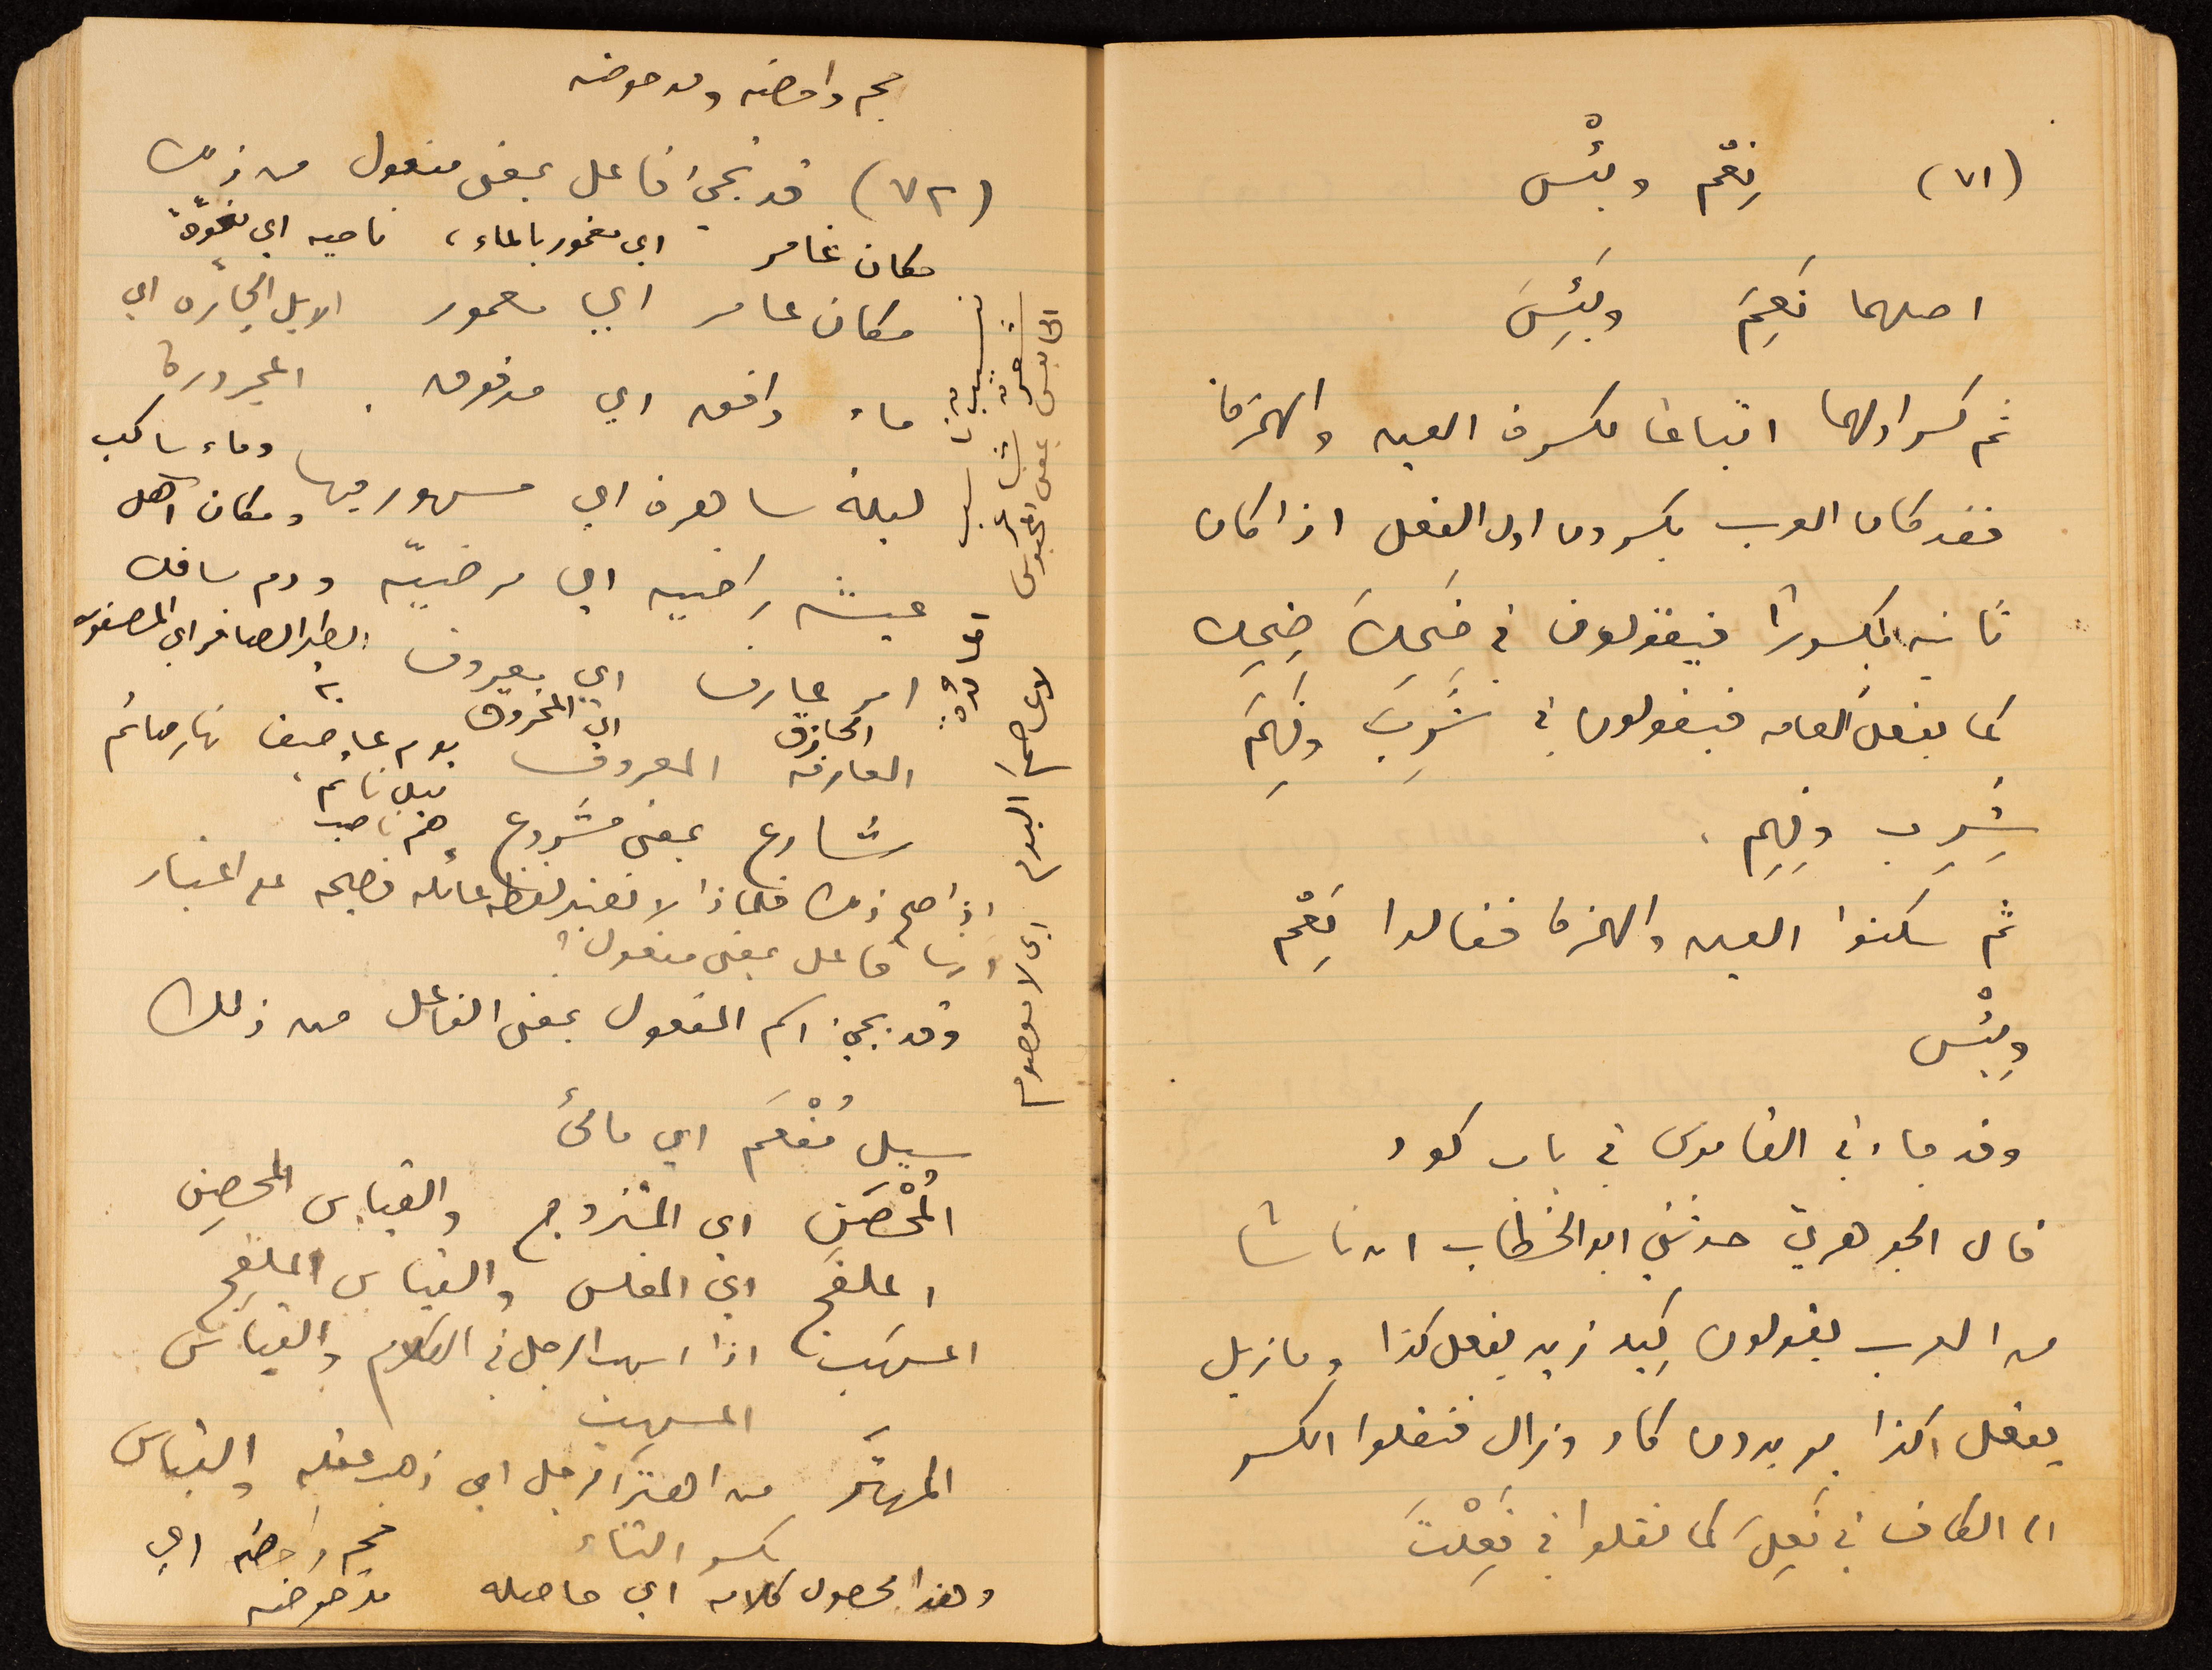 (٧١) نِعْم وبئْس
اصلهما نَعِمَ وبَئِسَ
ثم كسر اولهما اتباعًا لكسرة العين والهمزة
فقد كان العرب يكسرون اول الفعل اذا كان
ثانيه مكسورًا فيقولون في ضَحِكَ ضِحِك
كما يفعل العامه فيقولون في شَرِبَ وفَهِمَ
شِرِب وفِهِم .
ثم سكنوا العين والهمزة فقالوا نِعْم
وبِئْس
وقد جاء في القاموس في باب كود
قال الجوهري حدثني ابو الخطاب ان ناسًا
من العرب يقولون كِيد زيد يفعل كذا وما زيل
يفعل كذا يريدون كاد وزال فنقلوا الكسر
الى الكاف في فَعِلَ كما نقلوا في فَعِلْتَ
حجج داحضه ومدحوضه
(٧٢) قد تجيء فاعل بمعنى مفعول من ذلك
مكان غامر اي مغمور بالماء ،
مكان عامر اي معمور الابل الجارّه اي
ماء دافق اي مدفوق . المجرورة
وماء ساكب
ليلة ساهرة اي مسهور فيها ومكان آهل
عيشه راضيه اي مرضيّه ودم سافك
امر عارف اي معروف
الحازق اي المحزوق
العارفه المعروف يوم عاصف نهار صائم
ليل نائم ،
شارع بمعنى مشروع هم ناصب
اذا صح ذلك فلماذا لا نعتبر لفظة عائله فصيحه على اعتبار
انها فاعل بمعنى مفعول ؟
وقد يجيء اسم المفعول بمعنى الفاعل من ذلك
سيل مُفْعَم اي مالئ
المُحْصَن اي المتزوج والقياس المحصِن
الملفَج اي المفلس والقياس الملفِج
المسهَب اذا اسهب الرجل في الكلام والقياس
المسهِب
المهتَر من اهتر الرجل اي ذهب عقله والقياس
بكسر التاء
حجج داحضه اي
وهذا محصول كلامه اي حاصله مدحوضه
الحابس بمعنى المحبوس
لا عاصم اليوم اي لا معصوم